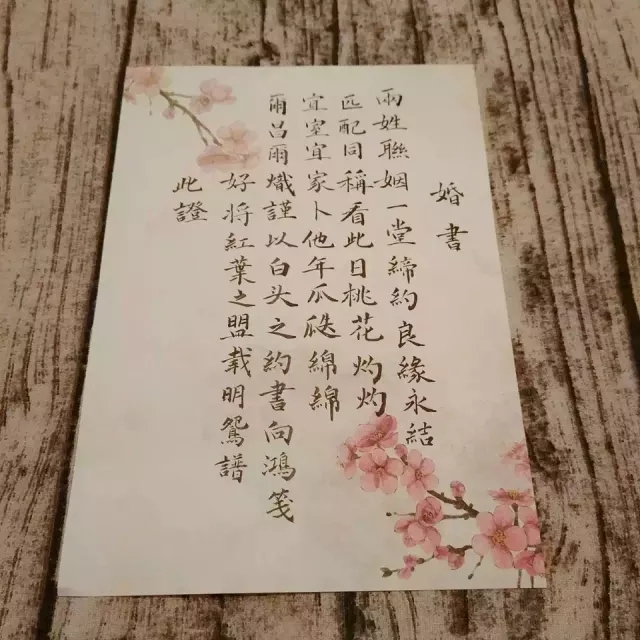 婚書
兩姓聯姻一堂締約良緣永結
匹配同稱看此日桃花灼灼
宜室宜家卜他年瓜瓞綿綿
爾昌爾熾謹以白头之約書向鴻箋
好將紅葉之盟載明鴛譜
此證